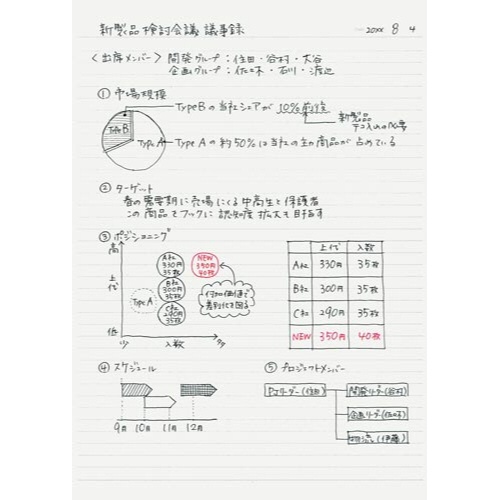 新製品検討会議 議事録
20XX 8 4
〈出席メンバー〉 開発グループ：住田・谷村・大谷
企画グループ：佐々木・石川・渡辺
① 市場規模
TypeBの当社シェアが10%前後
新製品
テコ入れの必要
TypeB
TypeA
TypeAの約50%は当社の主力商品が占めている
② ターゲット
春の需要期に売場にくる中高生と保護者
この商品をフックに認知度拡大も目指す
③ ポジショニング
高
上代
低
少
入数
多
TypeA
A社
330円
35枚
B社
300円
35枚
C社
290円
35枚
NEW
350円
40枚
付加価値で
差別化を図る
上代 入数
A社 330円 35枚
B社 300円 35枚
C社 290円 35枚
NEW 350円 40枚
④ スケジュール
9月 10月 11月 12月
⑤ プロジェクトメンバー
PJリーダー（住田）
開発リーダー（谷村）
企画リーダー（佐々木）
物流（伊藤）